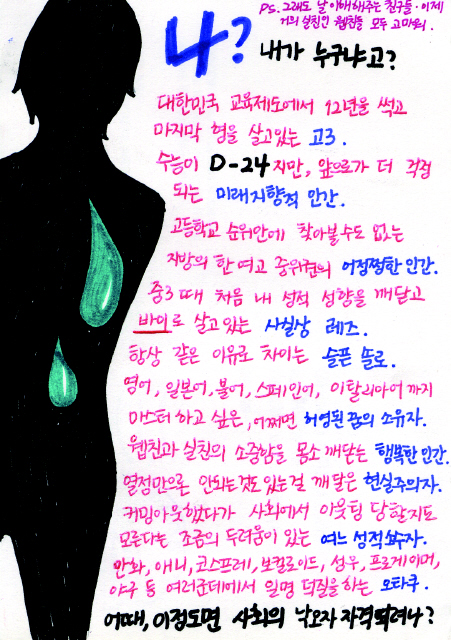 PS. 그래도 날 이해해주는 친구들·이제
거의 실친인 웹친들 모두 고마워.
나? 내가 누구냐고?
대한민국 교육제도에서 12년을 썩고
마지막 형을 살고있는 고3.
수능이 D-24 지만, 앞으로가 더 걱정
되는 미래지향적 인간.
고등학교 순위안에 찾아볼수도 없는
지방의 한 여고 중위권의 어정쩡한 인간.
중3 때 처음 내 성적 성향을 깨달고
바이로 살고있는 사실상 레즈.
항상 같은 이유로 차이는 슬픈 솔로.
영어, 일본어, 불어, 스페인어, 이탈리아어 까지
마스터 하고 싶은, 어쩌면 허영된 꿈의 소유자.
웹친과 실친의 소중함을 몸소 깨닫는 행복한 인간.
열정만으론 안되는것도 있는걸 깨달은 현실주의자.
커밍아웃했다가 사회에서 아웃팅 당할지도
모른다는 조금의 두려움이 있는 여느 성적소수자.
만화, 애니, 코스프레, 보컬로이드, 성우, 프로게이머,
야구 등 여러군데에서 일명 덕질을 하는 오타쿠.
어때, 이정도면 사회의 낙오자 자격 되려나?